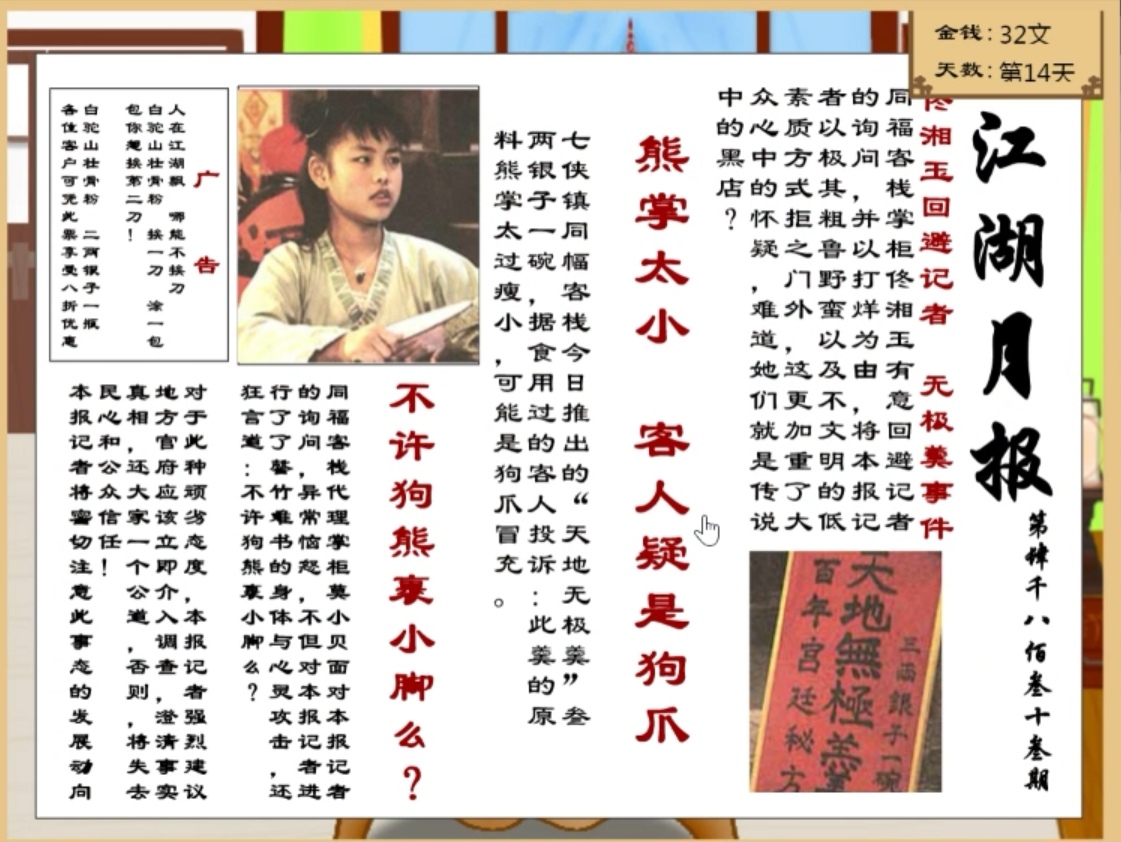 金钱:32文
天数:第14天
江湖月报
第肆千八佰叁十叁期
佟湘玉回避记者 无极羹事件
同福客栈掌柜佟湘玉有意回避记者
的询问,并以打烊为由,将本报记
者以极其粗鲁野蛮以及不文明的低
素质方式拒之门外,这更加重了大
众心中的怀疑,难道她们就是传说
中的黑店?
三両銀子一碗
天地無極羹
百年宮廷秘方
熊掌太小 客人疑是狗爪
七侠镇同幅客栈今日推出的“天地无极羹”叁
两银子一碗,据食用过的客人投诉:此羹的原
料熊掌太过瘦小,可能是狗爪冒充。
不许狗熊裹小脚么?
同福客栈代理掌柜莫小贝面对本报记者
的询问,异常恼怒,不但对本报记者进
行了了罄竹难书的身体与心灵攻击,还
狂言道:不许狗熊裹小脚么?
对于此种顽劣态度,本报记者强烈建议
地方官府应该立即介入调查,澄清事实
真相,还大家一个公道,否则,将失去
民心和公众信任!
本报记者将密切注意此事态的发展动向
广告
人在江湖飘 哪能不挨刀
白驼山壮骨粉 挨一刀 涂一包
包你想挨第二刀!
白驼山壮骨粉 二两银子一瓶
各位客户可凭此票享受八折优惠